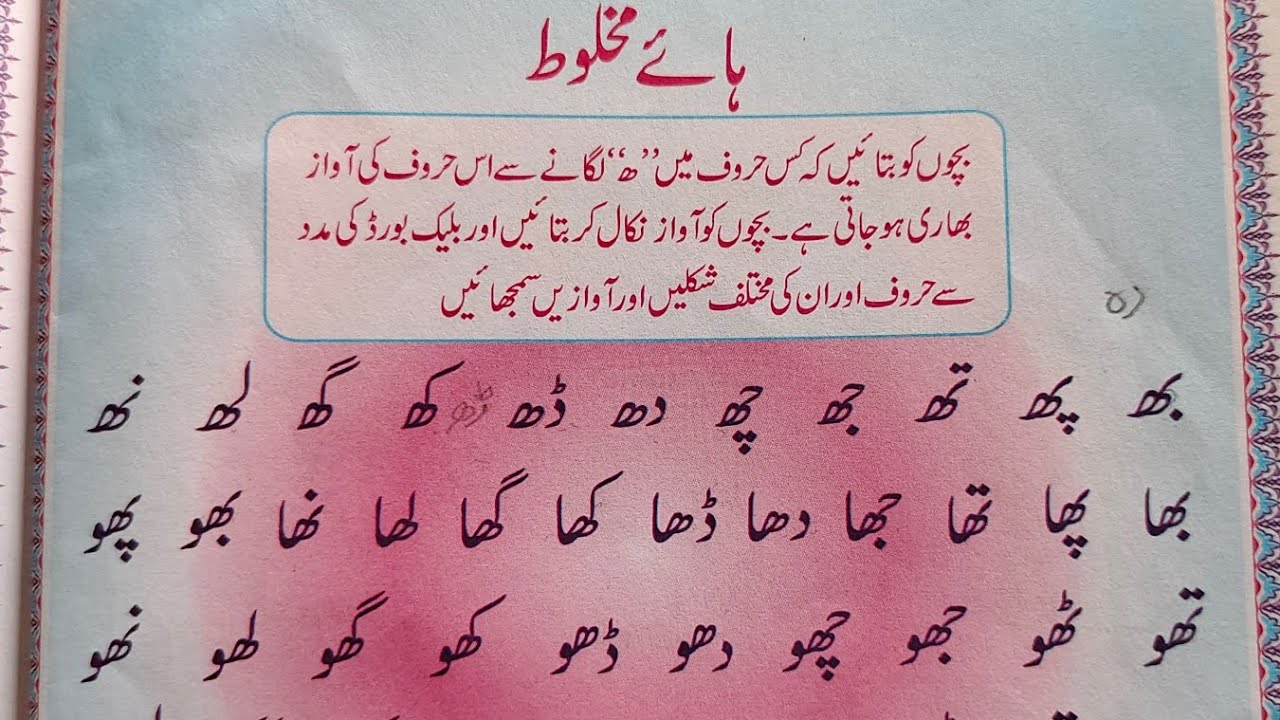 ہائے مخلوط
بچوں کو بتائیں کہ کس حروف میں ”ھ“ لگانے سے اس حروف کی آواز
بھاری ہو جاتی ہے۔ بچوں کو آواز نکال کر بتائیں اور بلیک بورڈ کی مدد
سے حروف اور ان کی مختلف شکلیں اور آوازیں سمجھائیں
بھ پھ تھ جھ چھ دھ ڈھ ڑھ کھ گھ لھ نھ
بھا پھا تھا جھا دھا ڈھا کھا گھا لھا نھا بھو پھو
تھو ٹھو جھو چھو دھو ڈھو کھو گھو لھو نھو